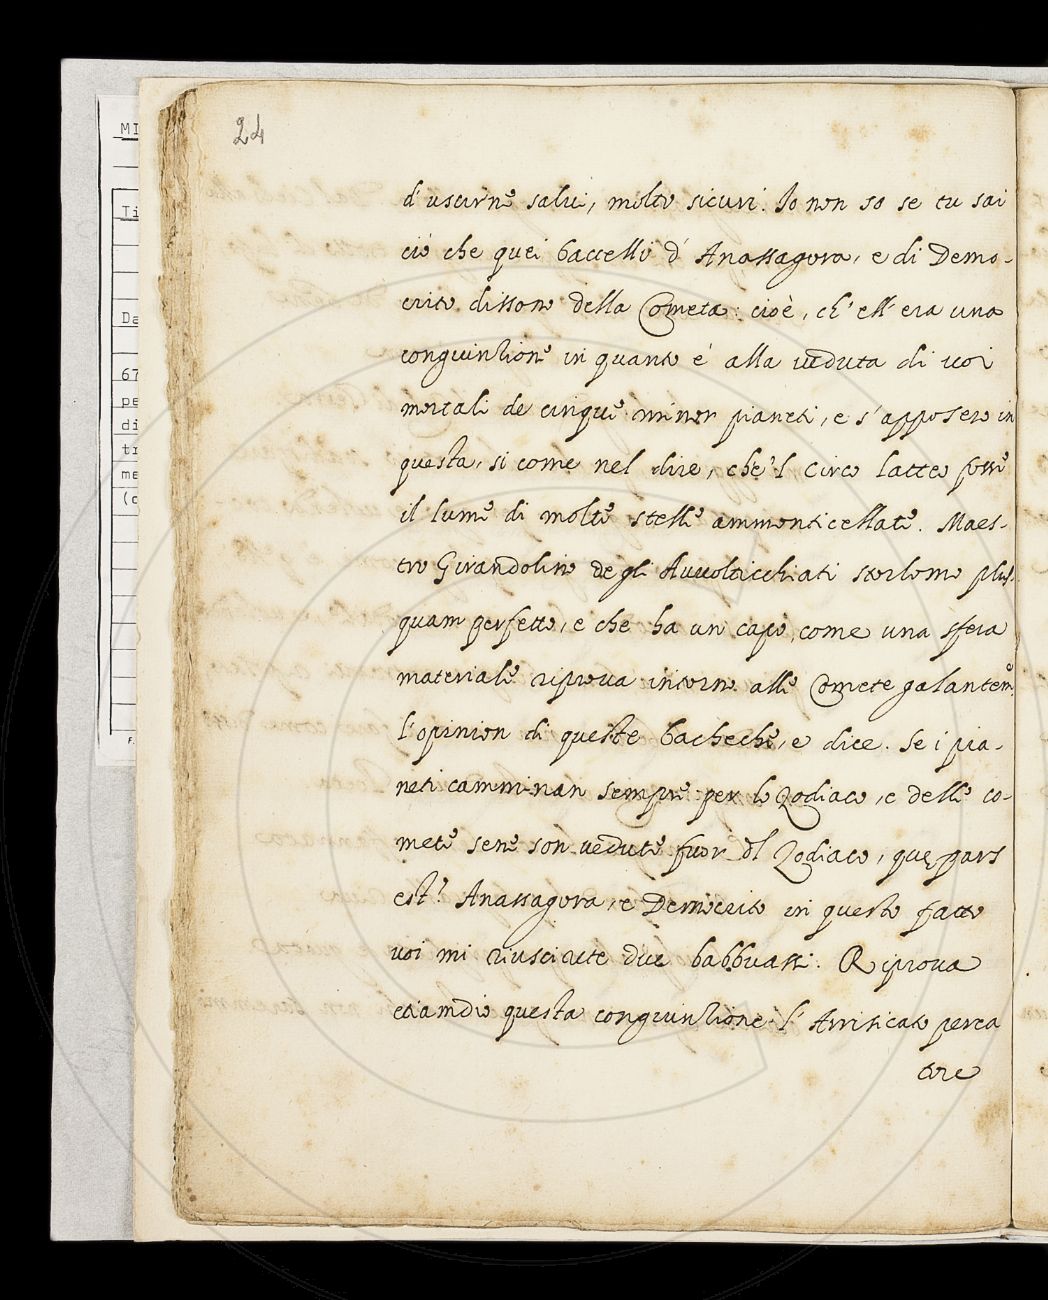 24
d'uscirne salui, molto sicuri. Io non so se tu sai
ciò che quei baccelli d'Anassagora, e di Demo-
crito dissono della Cometa: cioè, ch'ell'era una
congiunzione in quanto è alla veduta di voi
mortali de cinque minor pianeti, e s'apposero in
questa, si come nel dire, che'l Circo latteo fosse
il lume di molte stelle ammonticellate. Maes-
tro Girandolino degli Avvolticchiati storlomo plus
quam perfetto, e che ha un capo, come una sfera
materiale riprova intorno alle Comete galantem.e
l'opinion di queste bacheche, e dice. Se i pia-
neti camminan sempre per lo Zodiaco, e delle co-
mete sene son vedute fuor dl Zodiaco, que pars
est? Anassagora, e Democrito in questo fatto
voi mi riuscirete due babbuassi. Riprova
etiamdio questa congiunzione l'Arrisicato perca
tore
MI
Ti
Da
67
pe
di
tr
me
(c